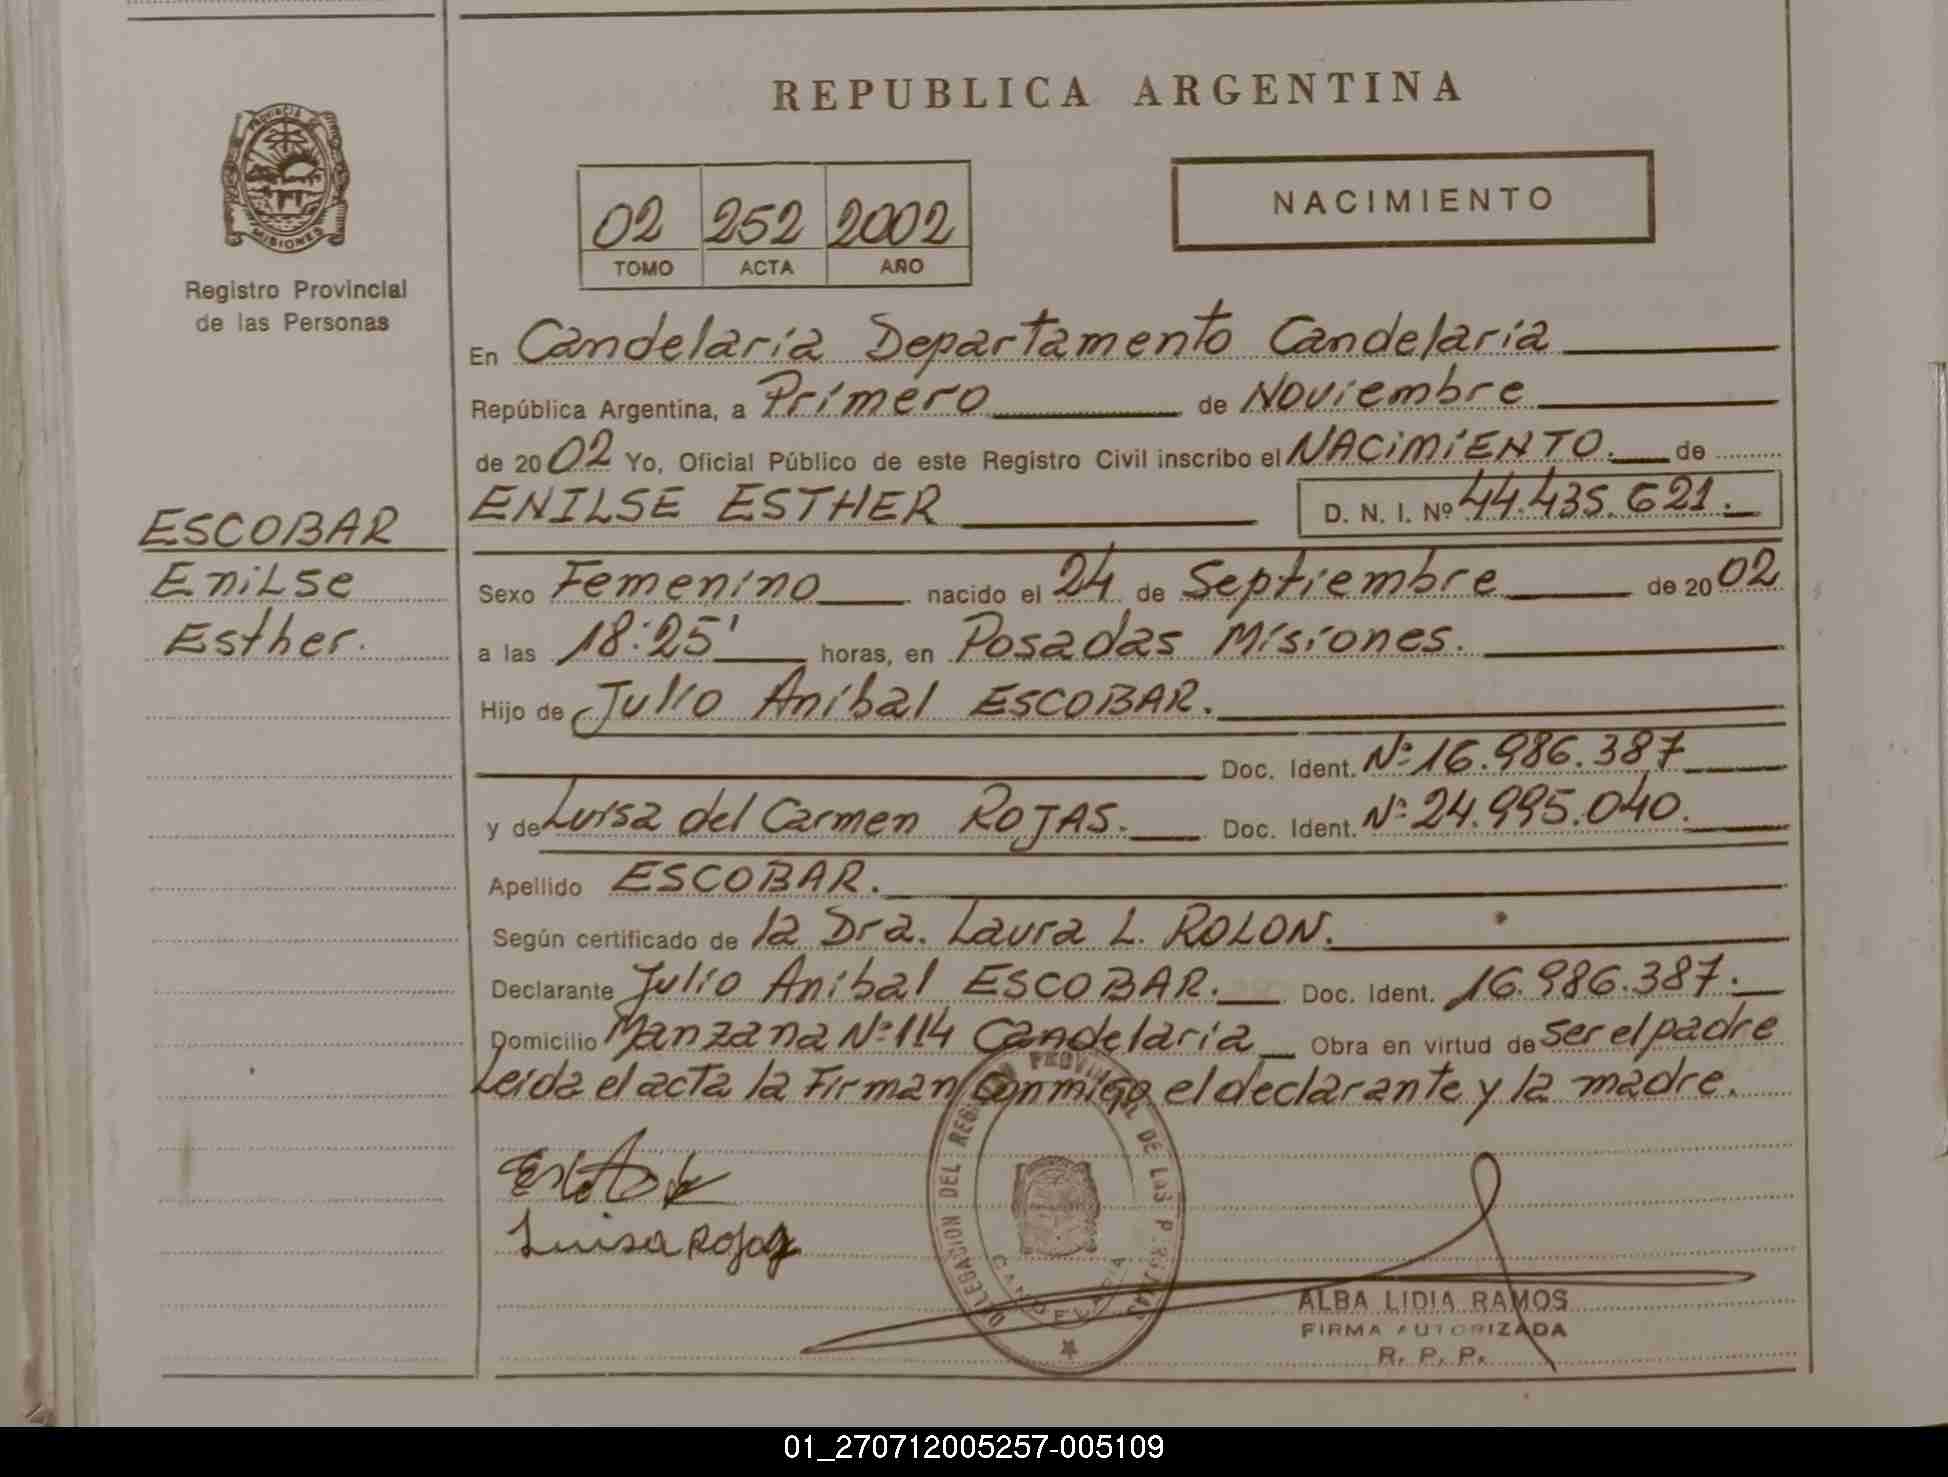 REPUBLICA ARGENTINA
PROVINCIA DE
MISIONES
Registro Provincial
de las Personas
02 252 2002
TOMO ACTA AÑO
NACIMIENTO
ESCOBAR
Enilse
Esther.
En Candelaria Departamento Candelaria
República Argentina, a Primero de Noviembre
de 2002 Yo, Oficial Público de este Registro Civil inscribo el NACIMIENTO. de
ENILSE ESTHER D. N. I. Nº 44.435.621.
Sexo Femenino nacido el 24 de Septiembre de 2002
a las 18:25' horas, en Posadas Misiones.
Hijo de Julio Anibal ESCOBAR.
Doc. Ident. Nº 16.986.387
y de Luisa del Carmen ROJAS. Doc. Ident. Nº 24.995.040.
Apellido ESCOBAR.
Según certificado de la Dra. Laura L. ROLON.
Declarante Julio Anibal ESCOBAR. Doc. Ident. 16.986.387.
Domicilio Manzana Nº 114 Candelaria Obra en virtud de ser el padre
Leida el acta la Firman conmigo el declarante y la madre.
Luisa Rojas
DELEGACION DEL REGISTRO PROVINCIAL DE LAS PERSONAS
CANDELARIA
ALBA LIDIA RAMOS
FIRMA AUTORIZADA
R. P. P.
01_270712005257-005109